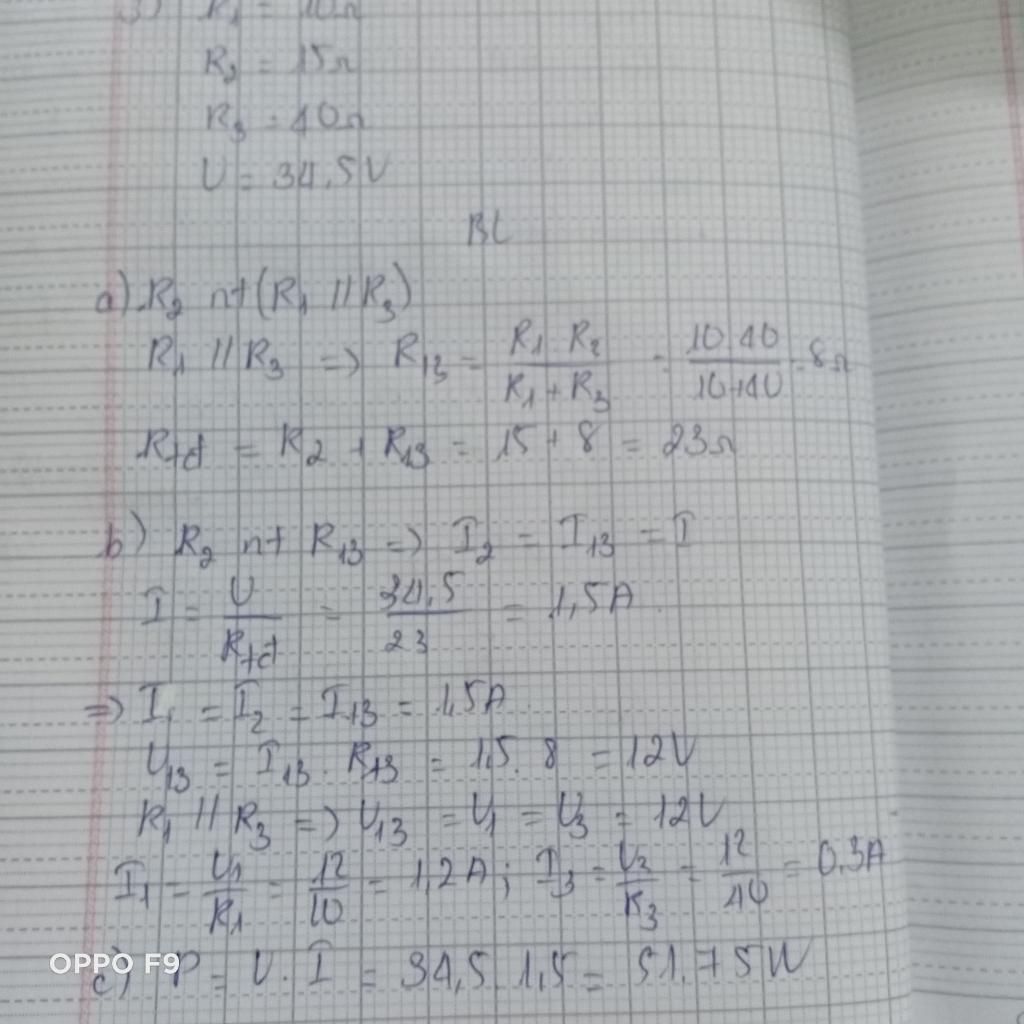 3) R₁ = 10Ω
R₂ = 15Ω
R₃ = 40Ω
U = 34,5V
BL
a) R₂ nt (R₁ // R₃)
R₁ // R₃ => R₁₃ = R₁ . R₂ / R₁ + R₃ = 10.40 / 10+40 = 8Ω
Rtđ = R₂ + R₁₃ = 15 + 8 = 23Ω
b) R₂ nt R₁₃ => I₂ = I₁₃ = I
I = U / Rtđ = 34,5 / 23 = 1,5A
=> I₁ = I₂ = I₁₃ = 1,5A
U₁₃ = I₁₃ . R₁₃ = 1,5 . 8 = 12V
R₁ // R₃ => U₁₃ = U₁ = U₃ = 12V
I₁ = U₁ / R₁ = 12 / 10 = 1,2A ; I₃ = U₃ / R₃ = 12 / 40 = 0,3A
c) P = U . I = 34,5 . 1,5 = 51,75W
OPPO F9